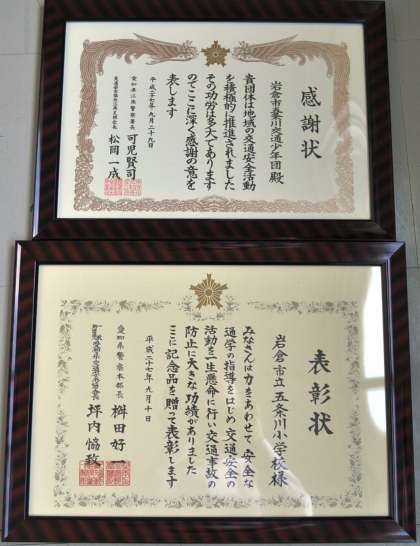 感謝状
岩倉市五条川交通少年団 殿
貴団体は地域の交通安全活動
を積極的に推進されました
その功労は多大であります
のでここに深く感謝の意を
表します
平成二十七年九月二十九日
愛知県江南警察署長 可児賢司
松岡一成
表彰状
岩倉市立五条川小学校 様
みなさんは力をあわせて安全な
通学の指導をはじめ交通安全の
活動を一生懸命に行い交通事故の
防止に大きな功績がありました
ここに記念品を贈って表彰します
平成二十七年九月十日
愛知県警察本部長 桝田好一
坪内恊致